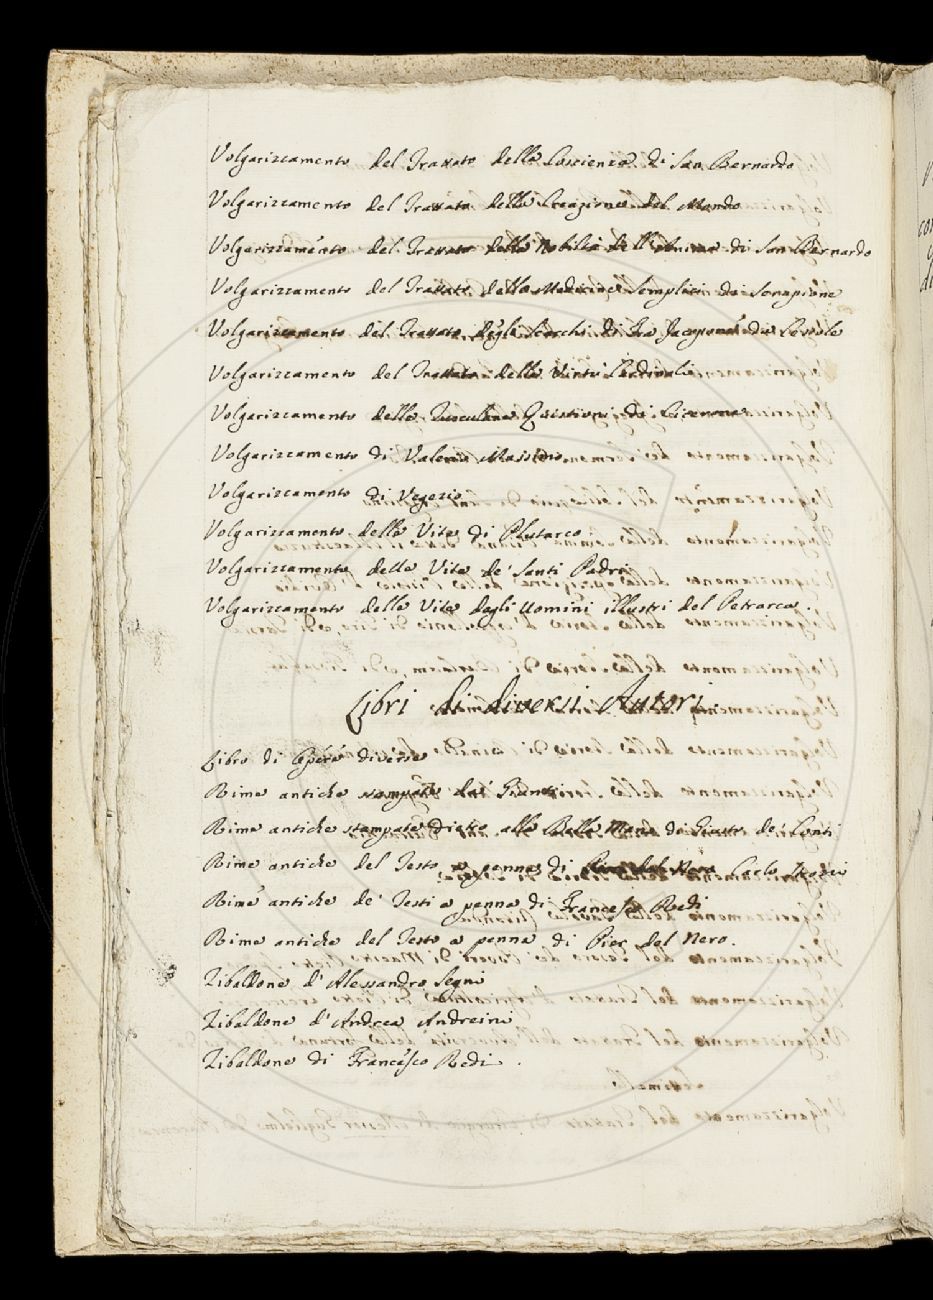 Volgarizzamento del Trattato della Coscienza di San Bernardo
Volgarizzamento del Trattato della Creazione del Mondo
Volgarizzamento del Trattato della Nobiltà dell'Anima di San Bernardo
Volgarizzamento del Trattato delle Medicine Semplici di Serapione
Volgarizzamento del Trattato degli Scacchi di Fra Jacopone da Cessole
Volgarizzamento del Trattato delle Virtù Cardinali
Volgarizzamento delle Tusculane Quistioni di Cicerone
Volgarizzamento di Valerio Massimo
Volgarizzamento di Vegezio
Volgarizzamento delle Vite di Plutarco
Volgarizzamento delle Vite de' Santi Padri
Volgarizzamento delle Vite degli Uomini illustri del Petrarca.
Libri di diversi Autori.
Libro di Opere diverse
Rime antiche stampate da' Giunti
Rime antiche stampate dietro alla Bella Mano di Giusto de' Conti
Rime antiche del Testo a penna di Carlo Strozzi
Rime antiche de' Testi a penna di Francesco Redi
Rime antiche del Testo a penna di Pier del Nero.
Zibaldone d'Alessandro Segni
Zibaldone d'Andrea Andreini
Zibaldone di Francesco Redi.